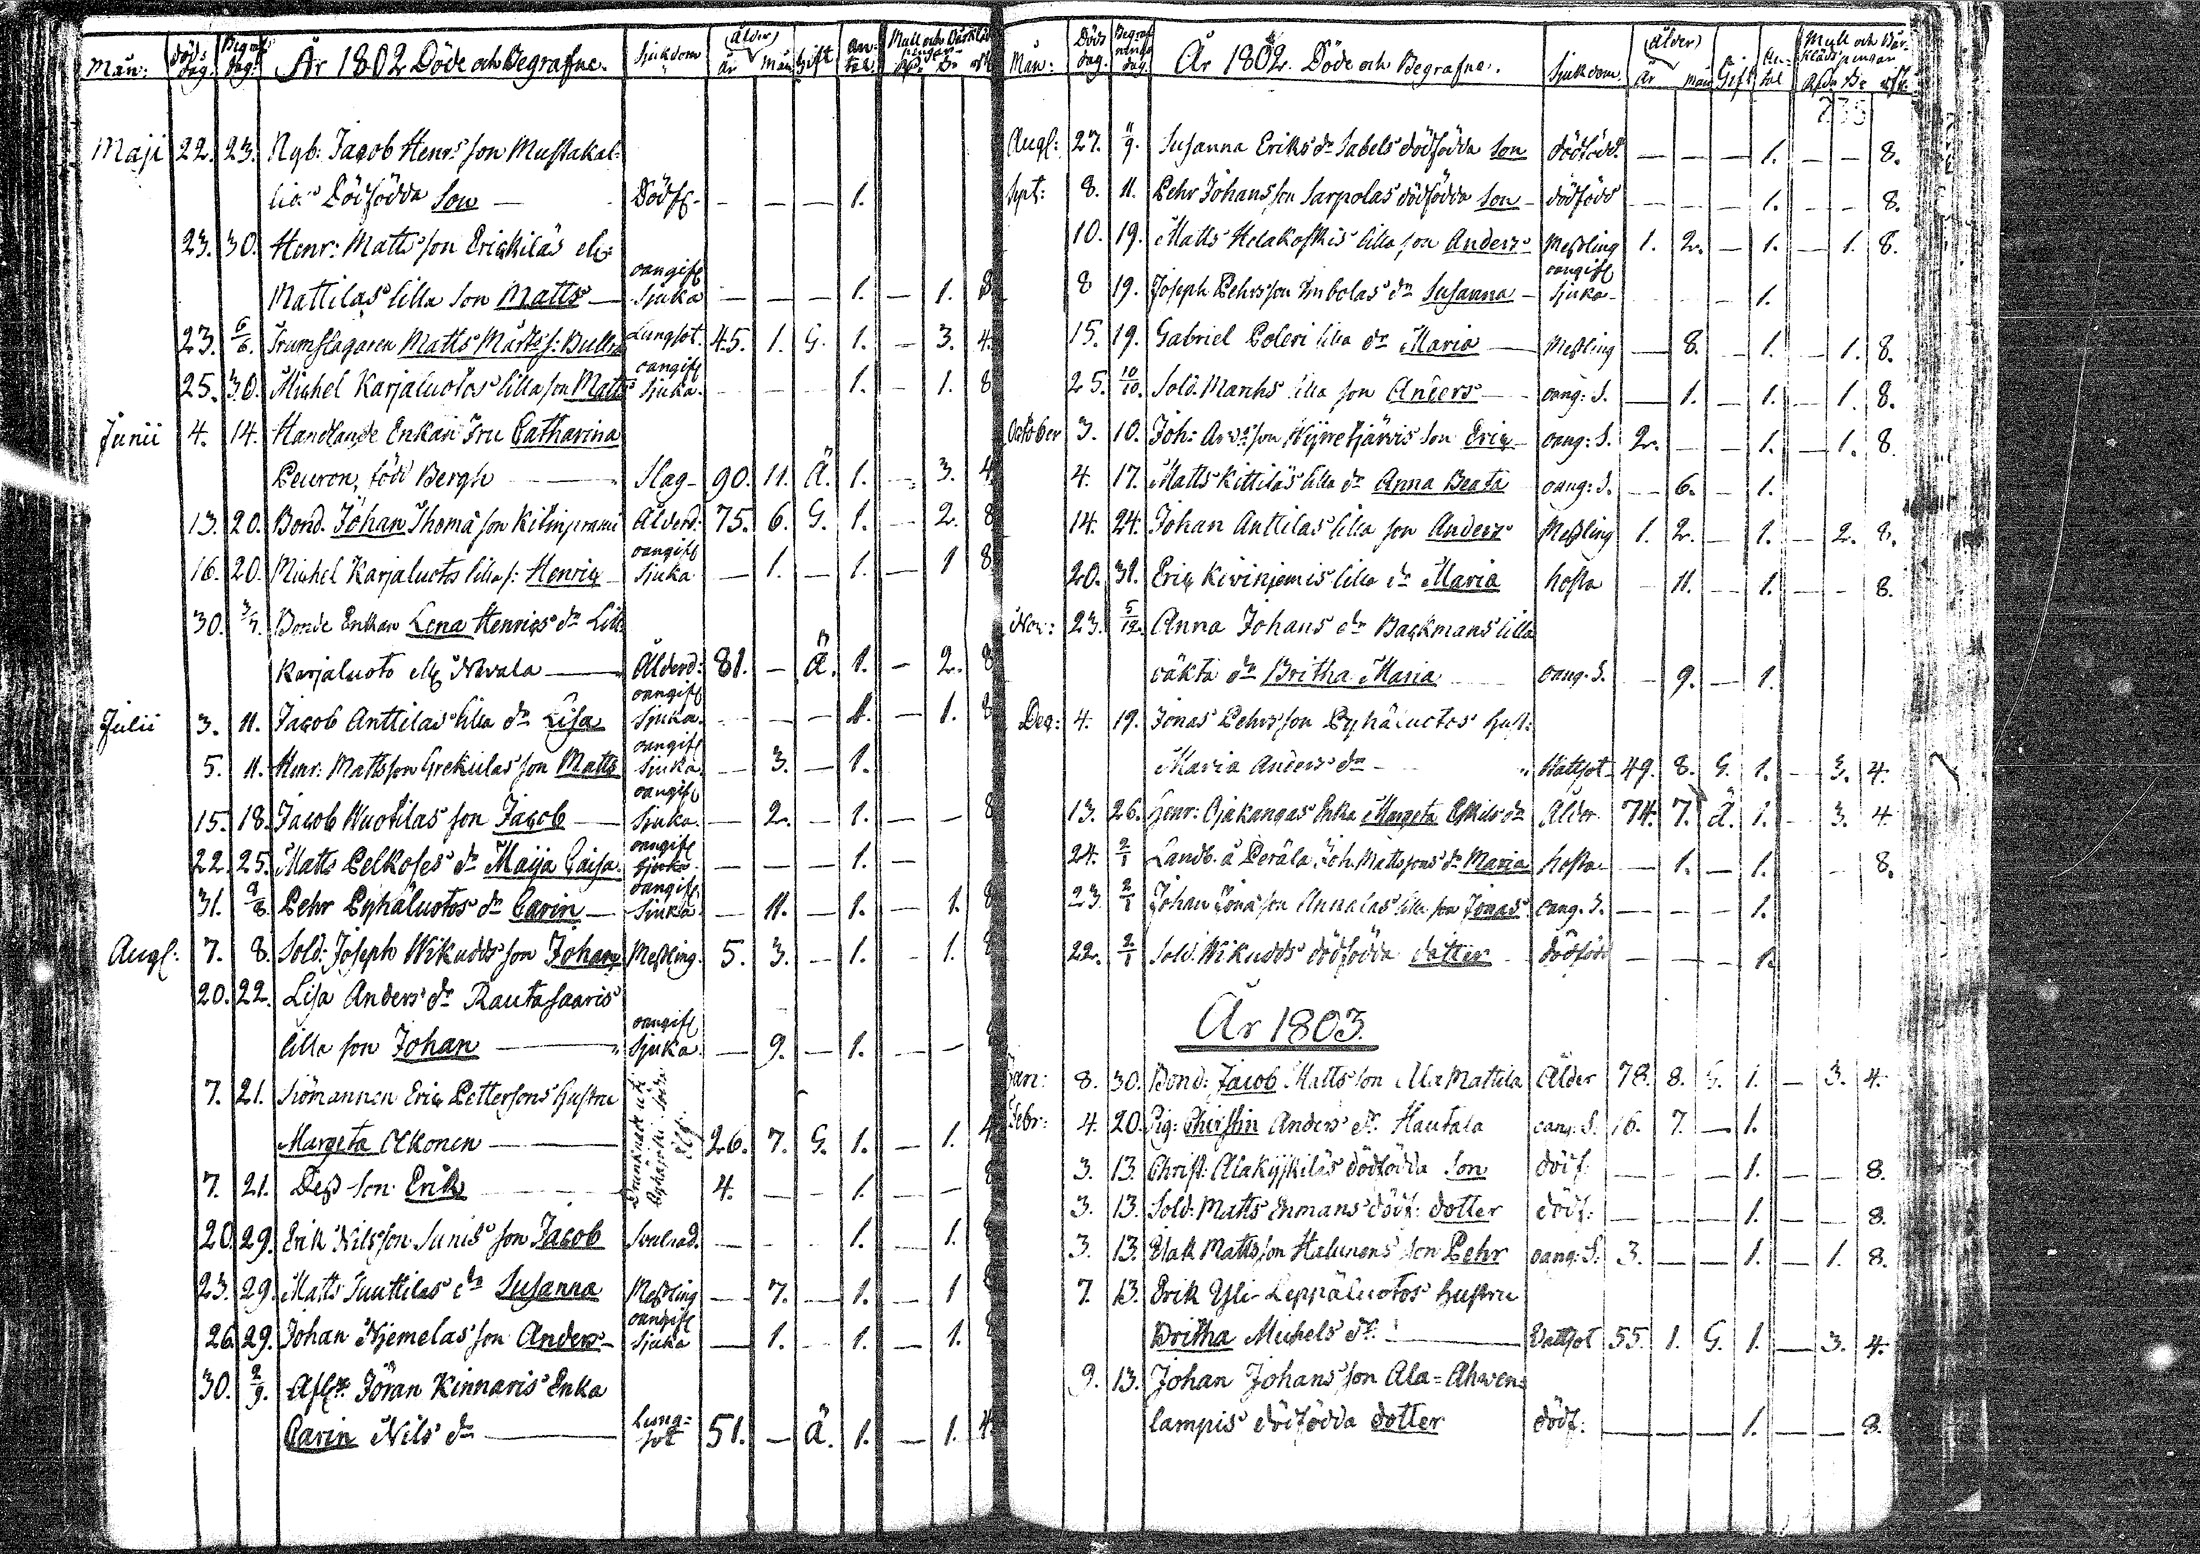 Mån: Döds dag. Begraf: dag: År 1802 Döde och Begrafne. Sjukdom Ålder år mån Gift An- tal Mull och Bårkläds pengar Rd. ß.
Maji 22. 23. Nyb: Jacob Henrs son Mustakal-
lios Dödfödda Son — Dödf. - — — 1.
23. 30. Henr: Matts son Erickiläs ell:
Mattilas lilla Son Matts — oangifl Sjuka — — — 1. — 1. 8
23. 6/6. Trumslagaren Matts Mårts s: Bulla Lungsot. 45. 1. G. 1. — 3. 4.
25. 30. Michel Karjaluotos lilla son Matts oangifl Sjuka. - - - 1. - 1. 8
Junii 4. 14. Handlande Enkan Fru Catharina
Peuron, född Bergh — Slag- 90. 11. Ä. 1. - 3. 4
13. 20. Bond. Johan Thoma son Ålderd: 75. 6. G. 1. — 2. 8
16. 20. Michel Karjaluotos lilla s: Henric oangifl Sjuka — 1. — 1. — 1 8
30. 3/7. Bonde Enkan Lena Henrics dr
Karjaluoto — Ålderd: 81. - Ä. 1. - 2. 8
Julii 3. 11. Jacob Anttilas lilla dr Lisa oangifl Sjuka. - - - 1. — 1. 8
5. 11. Henr: Matts son Grekulas son Matts oangifl Sjuka. — 3. — 1.
15. 18. Jacob Wuotilas son Jacob — oangifl Sjuka. — 2. — 1. — — 8
22. 25. Matts Pelkoses dr Maija Caisa. oangifl Sjuka. — — — 1. —
31. 8. Pehr Pyhäluotos dr Carin — oangifl Sjuka. — 11. — 1. — 1. 8
Augl: 7. 8. Sold: Joseph Wikudds son Johan Messling. 5. 3. — 1. — 1. 8
20. 22. Lisa Anders dr Rautasaaris
lilla son Johan — oangifl Sjuka. — 9. — 1. — —
7. 21. Siömannen Eric Pettersons hustru
Margeta Olkonen — 26. 7. G. 1. — 1. 4
Drunknade uti Pyhäjoki
7. 21. Dess son Erik 4. — — 1. —
20. 29. Erik Nilsson Sunis son Jacob - - - 1. — 1.
23. 29. Matts Juuttilas dr Susanna Messling — 7. — 1. — 1
26. 29. Johan Njemelas son Anders — oangifl Sjuka — 1. — 1. — 1.
30. 2/9. Jöran Kinnaris Enka
Carin Nils dr — Lung- sot 51. — Ä. 1. — 1. 4
Mån: Döds dag. Begraf nings dag År 1802. Döde och Begrafne. Sjukdom Ålder år mån Gift An- tal Mull och Bår- kläds pengar
235
Augl: 27. 11/9. Susanna Eriks dr Sabels dödfödda Son dödfödd — — — 1. — — 8.
Sept: 8. 11. Pehr Johans son Sarpolas dödfödda Son — dödfödd — — — 1. — — 8.
10. 19. Matts Helakoskis lilla son Anders Messling 1. 2. — 1. — 1. 8.
8 19. Joseph Pehrs son Imbolas dr Susanna — oangifl Sjuka - - - 1.
15. 19. Gabriel Poleri lilla dr Maria — Messling — 8. — 1. — 1. 8.
25. 10/10. Sold. Marchs lilla son Anders — oang: S. — 1. — 1. — 1. 8.
October 3. 10. Joh: son Son Eric oang: S. 2. — — 1. — 1. 8.
4. 17. Matts Kittiläs lilla dr Anna Beata oang: S. — 6. — 1.
14. 24. Johan Anttilas lilla son Anders Messling 1. 2. — 1. — 2. 8.
20. 31. Eric Kivinjemis lilla dr Maria hosta — 11. — 1. — — 8.
Nov: 23. 5/12. Anna Johans dr Backmans lilla
oäkta dr Britha Maria oang. S. — 9. — 1.
Dec: 4. 19. Jonas Pehrs son Pyhäluotos hust:
Maria Anders dr — Wattsot 49. 8. G. 1. — 3. 4.
13. 26. Henr: Ojakangas Enka Margeta Eskils dr Ålder 74. 7. Ä. 1. — 3. 4.
24. 2/1 Landb. å Peräla Joh. Matts sons dr Maria hosta — 1. — 1. — — 8.
23. 2/1 Johan Jonas son Annalas lilla son Jonas oang. S. — — — 1.
22. 2/1 Sold. Wikudds dödfödda dotter dödfödd — — — 1.
År 1803.
Jan: 8. 30. Bond: Jacob Matts son Ala Mattila Ålder 78. 8. G. 1. — 3. 4.
Febr: 4. 20. Pig: Christin Anders dr Hautala oang: S. 16. 7. — 1.
3. 13. Christ: dödfödda Son dödf: — — — 1. — — 8.
3. 13. Sold: Matts Enmans dödf: dotter dödf: — — — 1. — — 8.
3. 13. Isak Matts son Halunens son Pehr oang: S. 3. — — 1. — 1. 8.
7. 13. Erik Yli-Leppäluotos hustru
Britha Michels dr — Wattsot 55. 1. G. 1. — 3. 4.
9. 13. Johan Johans son Ala-Ahven-
lampis dödfödda dotter dödf: — — — 1. — — 8.